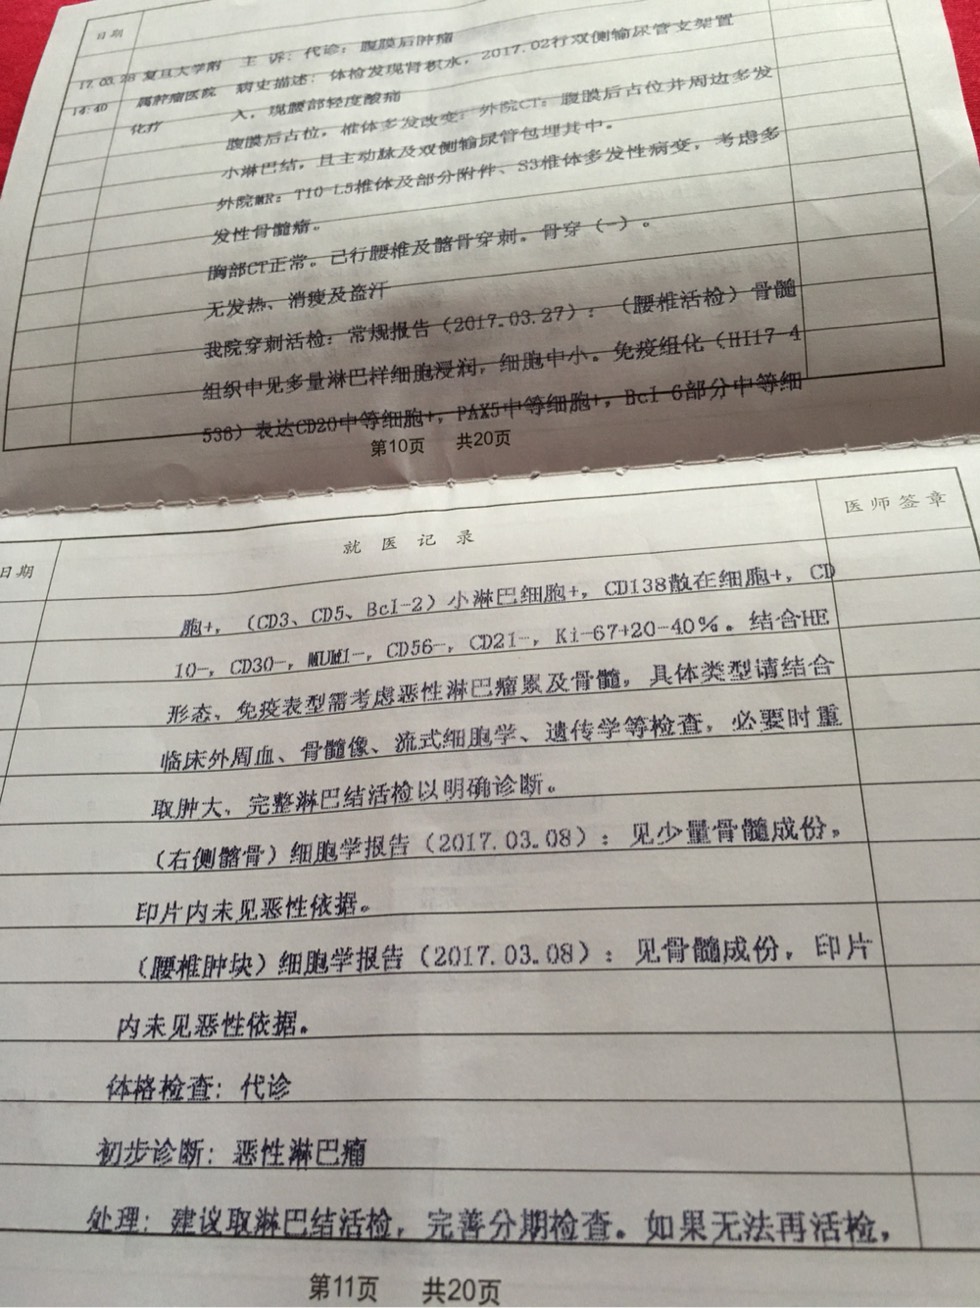 日期
17.03.28 复旦大学附 主 诉：代诊：腹膜后肿瘤
14:40 属肿瘤医院 病史描述：体检发现肾积水，2017.02行双侧输尿管支架置
化疗 入，现腰部轻度酸痛
腹膜后占位，椎体多发改变；外院CT：腹膜后占位并周边多发
小淋巴结，且主动脉及双侧输尿管包埋其中。
外院MR：T10-L5椎体及部分附件、S3椎体多发性病变，考虑多
发性骨髓瘤。
胸部CT正常。已行腰椎及髂骨穿刺。骨穿（-）。
无发热、消瘦及盗汗
我院穿刺活检：常规报告（2017.03.27）：（腰椎活检）骨髓
组织中见多量淋巴样细胞浸润，细胞中小。免疫组化（HI17-4
538）表达CD20中等细胞+，PAX5中等细胞+，Bcl-6部分中等细
第10页 共20页
日期 就医记录 医师签章
胞+，（CD3、CD5、Bcl-2）小淋巴细胞+，CD138散在细胞+，CD
10-，CD30-，MUM1-，CD56-，CD21-，Ki-67+20-40%。结合HE
形态、免疫表型需考虑恶性淋巴瘤累及骨髓，具体类型请结合
临床外周血、骨髓像、流式细胞学、遗传学等检查，必要时重
取肿大、完整淋巴结活检以明确诊断。
（右侧髂骨）细胞学报告（2017.03.08）：见少量骨髓成份，
印片内未见恶性依据。
（腰椎肿块）细胞学报告（2017.03.08）：见骨髓成份，印片
内未见恶性依据。
体格检查：代诊
初步诊断：恶性淋巴瘤
处理：建议取淋巴结活检，完善分期检查。如果无法再活检，
第11页 共20页